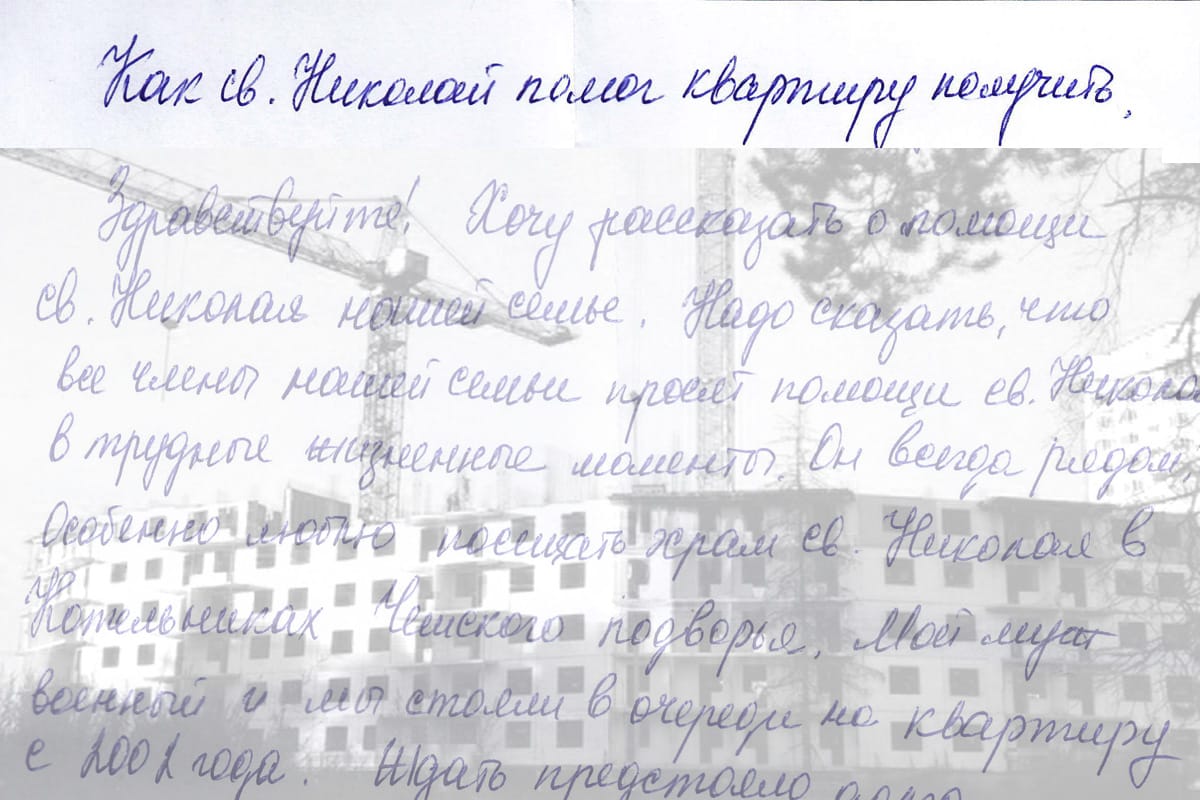 Как св. Николай помог квартиру получить.
Здравствуйте! Хочу рассказать о помощи
св. Николая нашей семье. Надо сказать, что
все члены нашей семьи просят помощи св. Никола
в трудные жизненные моменты. Он всегда рядом.
Особенно люблю посещать храм св. Николая в
Котельниках Чешского подворья. Мой муж
военный и мы стояли в очереди на квартиру
с 2002 года. Ждать предстояло долго